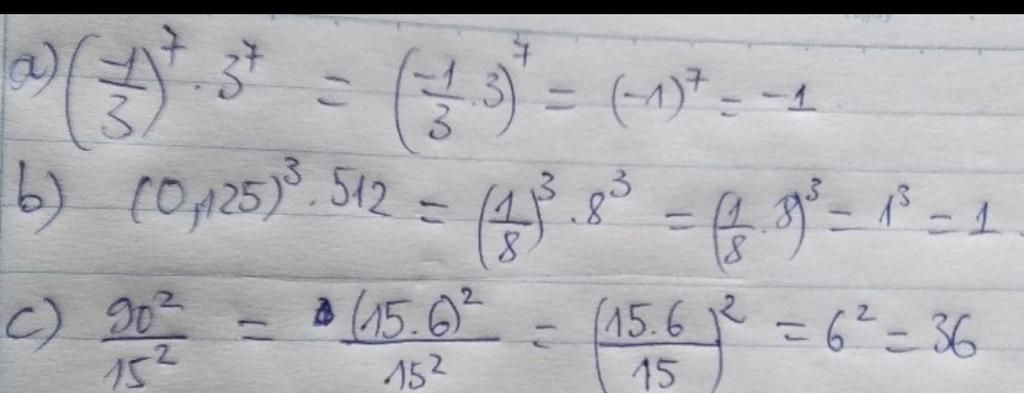 a) (-1/3)^7 . 3^7 = (-1/3 . 3)^7 = (-1)^7 = -1
b) (0,125)^3 . 512 = (1/8)^3 . 8^3 = (1/8 . 8)^3 = 1^3 = 1.
c) 90^2/15^2 = (15.6)^2/15^2 = (15.6/15)^2 = 6^2 = 36